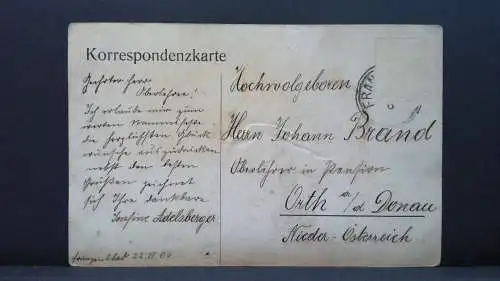 Korrespondenzkarte
Geehrter Herr
Oberlehrer!
Ich erlaube mir zum
werten Namensfeste
die herzlichsten Glück-
wünsche auszudrücken
nebst den besten
Grüßen zeichnet
sich Ihre dankbare
Josefine Adelsberger
Franzensbad 22.
Hochwolgeboren
Herrn Johann Brand
Oberlehrer in Pension
Orth a/d Donau
Nieder-Österreich
FRAN